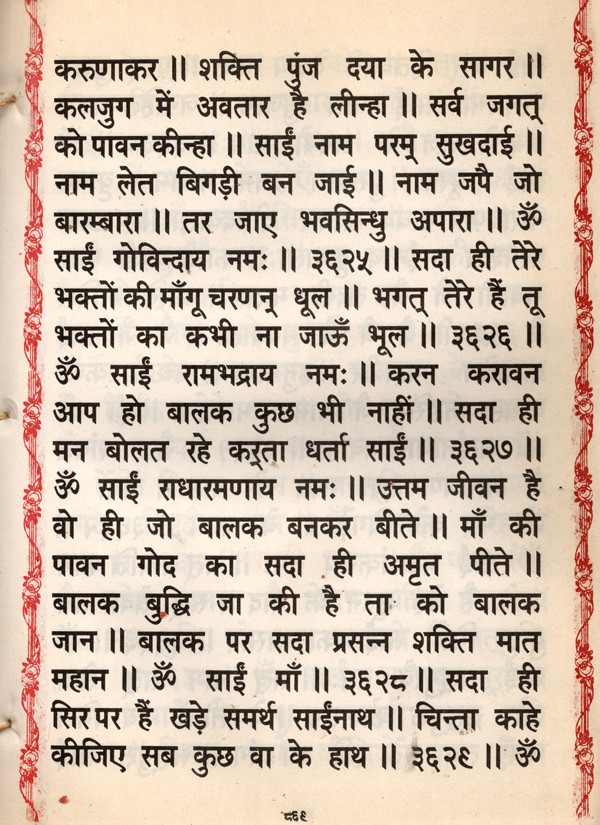 करुणाकर ॥ शक्ति पुंज दया के सागर ॥
कलजुग में अवतार है लीन्हा ॥ सर्व जगत्
को पावन कीन्हा ॥ साईं नाम परम् सुखदाई ॥
नाम लेत बिगड़ी बन जाई ॥ नाम जपै जो
बारम्बारा ॥ तर जाए भवसिन्धु अपारा ॥ ॐ
साईं गोविन्दाय नमः ॥ ३६२५ ॥ सदा ही तेरे
भक्तों की माँगू चरणन् धूल ॥ भगत् तेरे हैं तू
भक्तों का कभी ना जाऊँ भूल ॥ ३६२६ ॥
ॐ साईं रामभद्राय नमः ॥ करन करावन
आप हो बालक कुछ भी नाहीं ॥ सदा ही
मन बोलत रहे कर्‌ता धर्ता साईं ॥ ३६२७ ॥
ॐ साईं राधारमणाय नमः ॥ उत्तम जीवन है
वो ही जो बालक बनकर बीते ॥ माँ की
पावन गोद का सदा ही अमृत पीते ॥
बालक बुद्धि जा की है ताः को बालक
जान ॥ बालक पर सदा प्रसन्न शक्ति मात
महान ॥ ॐ साईं माँ ॥ ३६२८ ॥ सदा ही
सिर पर हैं खड़े समर्थ साईंनाथ ॥ चिन्ता काहे
कीजिए सब कुछ वा के हाथ ॥ ३६२९ ॥ ॐ
८६९